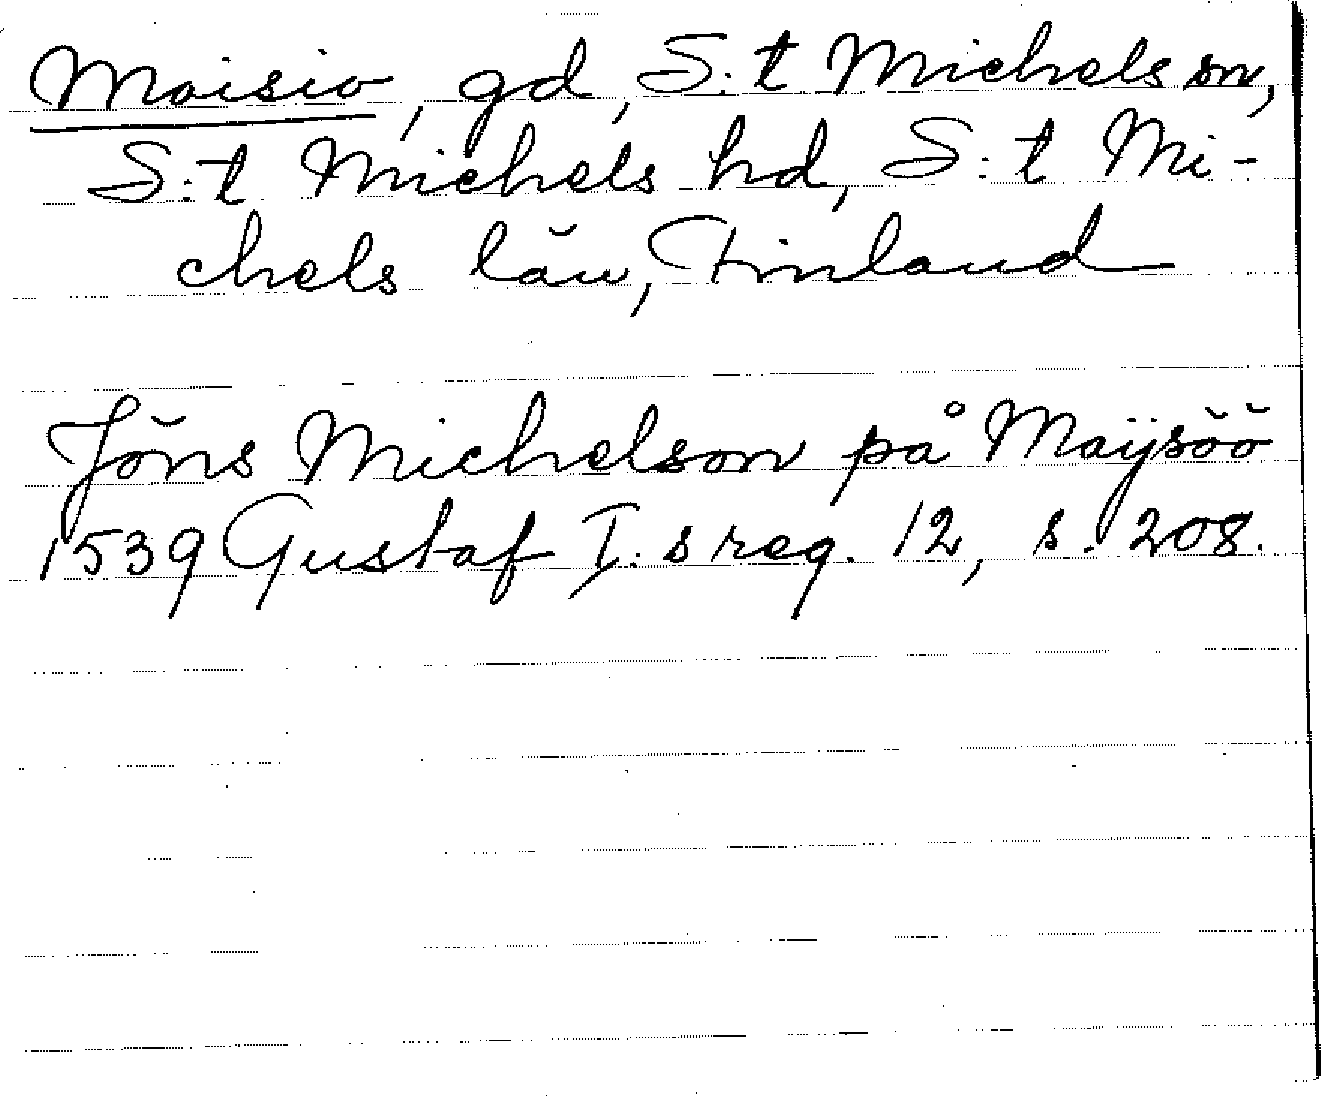 Moisio, gd, S:t Michels sn,
S:t Michels hd, S:t Mi-
chels län, Finland
Jöns Michelson på Maÿsöö
1539 Gustaf I:s reg. 12, s. 208.